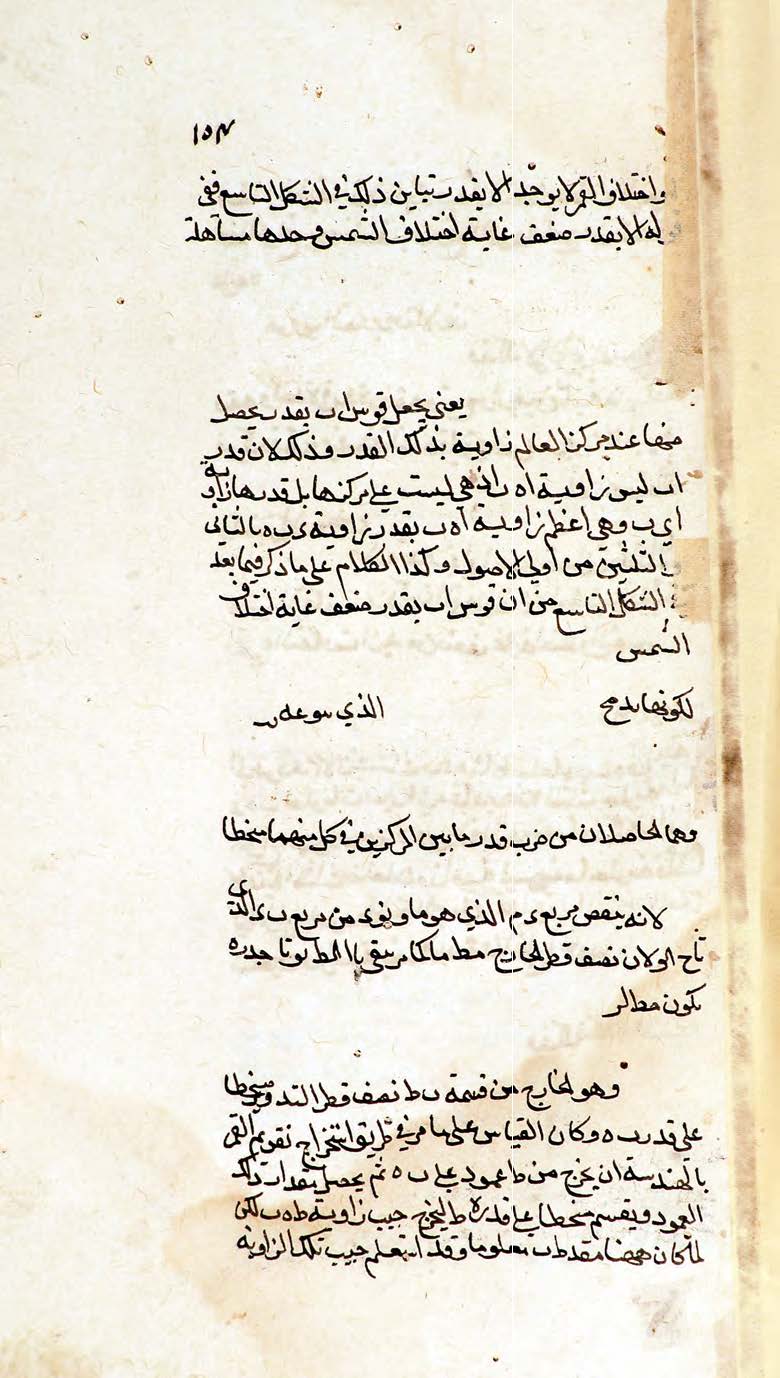 ١٥٣
واختلاف القمر لا يوجد الا بقدر تباين ذلك في الشكل التاسع ففي
الا بقدر ضعف غاية اختلاف الشمس وحدها مساهلة
يعني يجعل قوس اب بقدر يحصل
منها عند مركز العالم زاوية بذلك القدر وذلك لان قدر
اب ليس زاوية اه ب اذ هي ليست علي مركزها بل قدرها زاوية
اي ب وهي اعظم زاوية اه ب بقدر زاوية ى ب ه بالثاني
والثلثين من اولي الاصول وكذا الكلام علي ما ذكر فيما بعد
الشكل التاسع من ان قوس اب بقدر ضعف غاية اختلاف
الشمس
لكونها الذي
وهما الحاصلان من ضرب قدر ما بين المركزين في كل منهما منحطا
لانه ينقص مربع ءم الذي هو من مربع ب ء الذي
لان نصف قطر الخارج جذره
يكون
وهو الخارج من قسمة ب ط نصف قطر التدوير منحطا
علي قدر ب ه وكان القياس علي ما مر في طريق استخراج تقويم القمر
بالهندسة ان يخرج من ط عمود علي ب ه ثم يحصل مقدار ذلك
العمود ويقسم منحطا علي قدر ه ط ليخرج جيب زاوية ط ه ب لكن
لما كان ههنا معلوما وقد تلك الزاوية